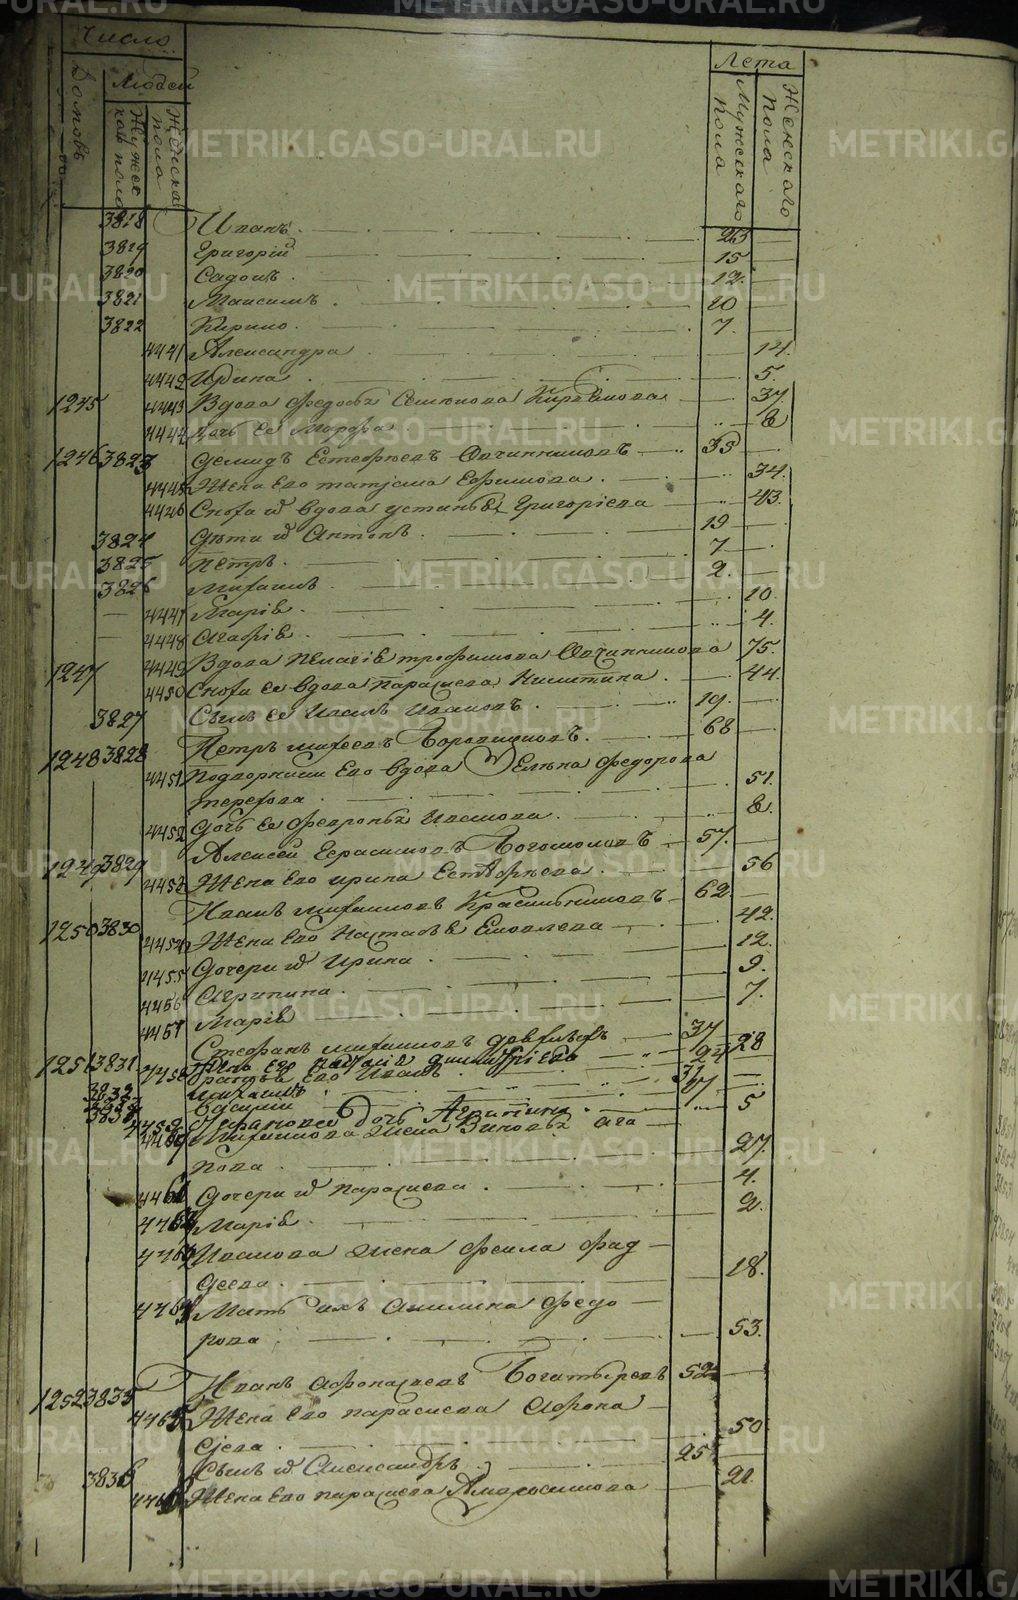 Число
Лета
Домовъ
Людей
Мужеска полa
Женска пола
Мужескаго пола
Женскаго пола
3818 Иванъ 23
3819 Григорiй 15
3820 Садокъ 12
3821 Максимъ 10
3822 Кирило 7
4441 Александра 14
4442 Ирина 5
1245 4443 Вдова Федосья Семенова 37
4444 дочь ее Марфа 8
1246 3823 Демидъ Естефѣевъ Овчинниковъ 35
4445 Жена ево татiана Ефимова 34
4446 Сноха и вдова устинья Григорiева 43
3824 дѣти Антонъ 19
3825 Петръ 7
3826 михаилъ 2
4447 Марiя 10
4448 Агафiя 4
1247 4449 Вдова Пелагiя трофимова Овчинникова 75
4450 Сноха ее вдова Парасиева Никитина 44
3827 Сынъ ее Иванъ Ивановъ 19
1248 3828 Петръ михеевъ 68
4451 Подворница ево вдова Елена Федорова
терехова 51
4452 дочь ее Феврон Иванова 8
1249 3829 Алексей Герасимовъ Богомоловъ 57
4453 Жена ево ирина Естефѣева 56
1250 3830 Иванъ михаиловъ Красильниковъ 62
4454 Жена ево Настасья Яковлева 42
4455 дочери Ирина 12
4456 Агрипина 9
4457 Марiя 7
1251 3831 Стефанъ михаиловъ 37
4458 Жена ево дмитрiева 28
3832 братья ево Иванъ 24
3833
3834 Василий 17
4459 Стефановы дочь Агрипина 5
Михаилова жена Зиновья ага
пова 27
4461 дочери Парасиева 4
4462 Марiя 2
4463 Иванова жена Фекла Фад
деева 18
4464 Мать ихъ Акилина Федо
рова 53
1252 3835 Иванъ Афонасиевъ Богатыревъ 52
4465 Жена ево парасиева Афона
сiева 50
3836 Сынъ Александръ 25
4466 Жена ево парасиева Амвросимова 21
METRIKI.GASO-URAL.RU